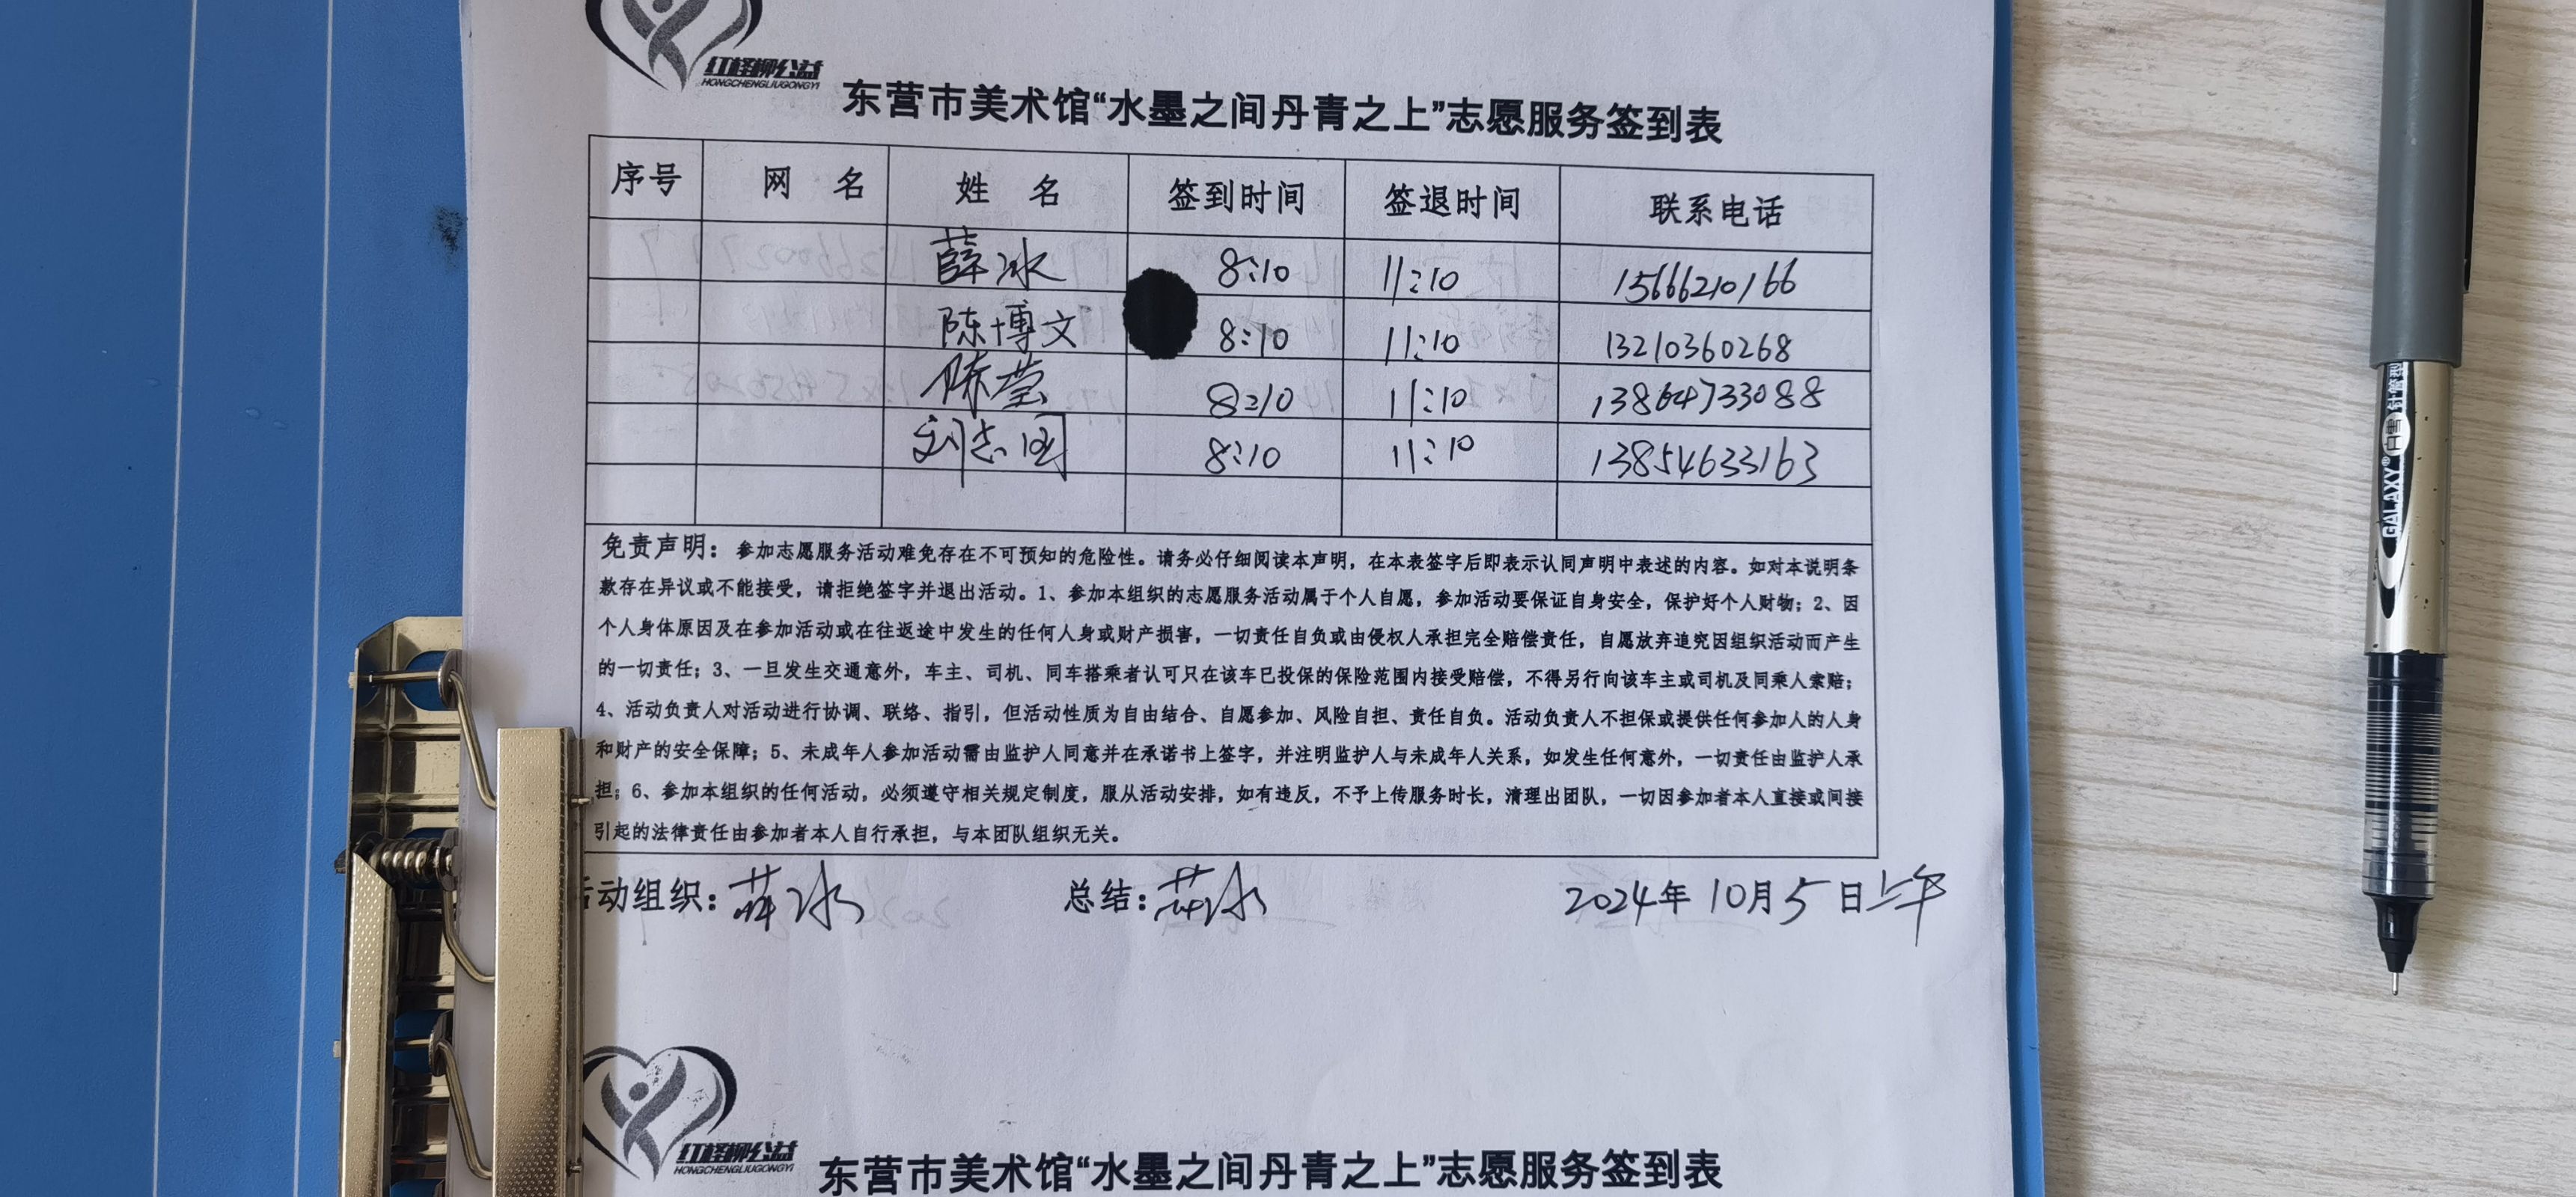 红柽柳公益
HONGCHENGLIUGONGYI
东营市美术馆“水墨之间丹青之上”志愿服务签到表
序号 网 名 姓 名 签到时间 签退时间 联系电话
薛冰 8:10 11:10 15666210166
陈博文 8:10 11:10 13210360268
陈莹 8:10 11:10 13864733088
刘志国 8:10 11:10 13854633163
免责声明：参加志愿服务活动难免存在不可预知的危险性。请务必仔细阅读本声明，在本表签字后即表示认同声明中表述的内容。如对本说明条
款存在异议或不能接受，请拒绝签字并退出活动。1、参加本组织的志愿服务活动属于个人自愿，参加活动要保证自身安全，保护好个人财物；2、因
个人身体原因及在参加活动或在往返途中发生的任何人身或财产损害，一切责任自负或由侵权人承担完全赔偿责任，自愿放弃追究因组织活动而产生
的一切责任；3、一旦发生交通意外，车主、司机、同车搭乘者认可只在该车已投保的保险范围内接受赔偿，不得另行向该车主或司机及同乘人索赔；
4、活动负责人对活动进行协调、联络、指引，但活动性质为自由结合、自愿参加、风险自担、责任自负。活动负责人不担保或提供任何参加人的人身
和财产的安全保障；5、未成年人参加活动需由监护人同意并在承诺书上签字，并注明监护人与未成年人关系，如发生任何意外，一切责任由监护人承
担；6、参加本组织的任何活动，必须遵守相关规定制度，服从活动安排，如有违反，不予上传服务时长，清理出团队，一切因参加者本人直接或间接
引起的法律责任由参加者本人自行承担，与本团队组织无关。
活动组织：薛冰 总结：薛冰 2024年 10月 5 日上午
红柽柳公益
HONGCHENGLIUGONGYI
东营市美术馆“水墨之间丹青之上”志愿服务签到表
GALAXY® 白雪 针管型